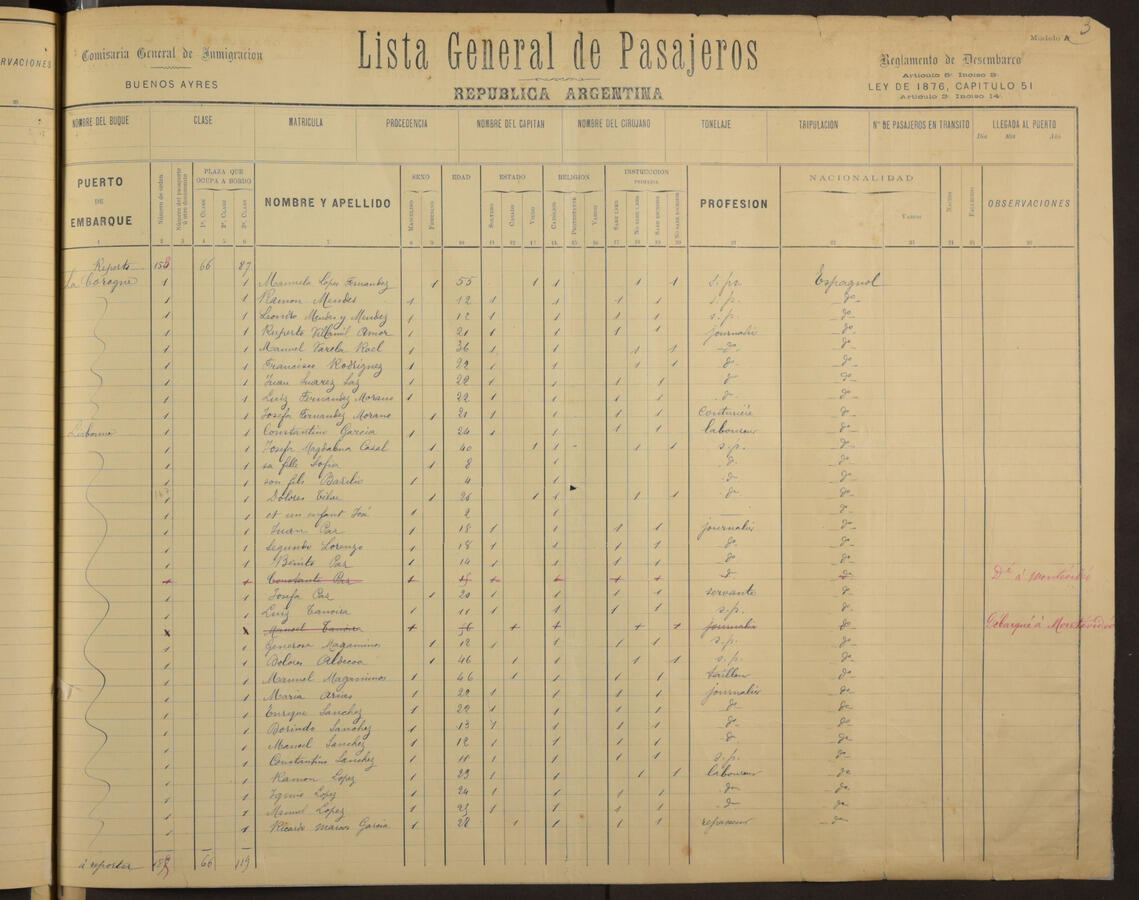 RVACIONES
Comisaría General de Inmigracion
BUENOS AYRES
Lista General de Pasajeros
REPUBLICA ARGENTINA
Modelo A
3
Reglamento de Desembarco
Articulo 5º Inciso 3º
LEY DE 1876, CAPITULO 51
Articulo 3º Inciso 14º
NOMBRE DEL BUQUE CLASE MATRICULA PROCEDENCIA NOMBRE DEL CAPITAN NOMBRE DEL CIRUJANO TONELAJE TRIPULACION Nº DE PASAJEROS EN TRANSITO LLEGADA AL PUERTO
Dia Mes Año
PUERTO DE EMBARQUE Número de orden Número del pasaporte ú otro documento PLAZA QUE OCUPA A BORDO 1ª CLASE 2ª CLASE 3ª CLASE NOMBRE Y APELLIDO SEXO MASCULINO FEMENINO EDAD ESTADO SOLTERO CASADO VIUDO RELIGION CATÓLICA PROTESTANTE VARIOS INSTRUCCION PRIMARIA SABE LEER NO SABE LEER SABE ESCRIBIR NO SABE ESCRIBIR PROFESION NACIONALIDAD VARIOS OBSERVACIONES
Report 66 87
La Corogne 1 1 Manuela Lopez Fernandez 1 55 1 1 1 1 s.p. Espagnol
1 1 Ramon Mendes 1 12 1 1 1 1 s.p. do
1 1 Leandro Mendes y Mendez 1 12 1 1 1 1 s.p. do
1 1 Ruperto Villamil Amor 1 21 1 1 1 1 journalier do
1 1 Manuel Varela Rael 1 36 1 1 1 1 do do
1 1 Francisco Rodriguez 1 22 1 1 1 1 do do
1 1 Juan Suarez 1 22 1 1 1 1 do do
1 1 Luiz Fernandez Morano 1 22 1 1 1 1 do do
1 1 Josefa Fernandez Morano 1 21 1 1 1 1 couturière do
Lisbonne 1 1 Constantino Garcia 1 24 1 1 1 1 laboureur do
1 1 Josefa Magdalena Casal 1 40 1 1 1 1 s.p. do
1 1 sa fille Sofia 1 8 1 do do
1 1 son fils Basilio 1 4 1 do do
1 1 Dolores 1 26 1 1 1 1 do do
1 1 et un enfant José 1 2 1 do
1 1 Juan Paz 1 18 1 1 1 1 journalier do
1 1 Segundo Lorenzo 1 18 1 1 1 1 do do
1 1 Benito Paz 1 14 1 1 1 1 do do
Constante Paz do do Dº à Montévidéo
1 1 Josefa Paz 1 20 1 1 1 1 servante do
1 1 Luiz Canoira 1 11 1 1 1 1 s.p. do
Manuel Canoira 56 journalier do Débarqué à Montévidéo
1 1 Generosa Magarinnos 1 12 1 1 1 1 s.p. do
1 1 Dolores 1 46 1 1 1 1 s.p. do
1 1 Manuel Magarinnos 1 46 1 1 1 1 do
1 1 Maria 1 22 1 1 1 1 journalier do
1 1 Enrique Sanchez 1 22 1 1 1 1 do do
1 1 Sanchez 1 13 1 1 1 1 do do
1 1 Manuel Sanchez 1 12 1 1 1 1 do do
1 1 Constantino Sanchez 1 11 1 1 1 1 s.p. do
1 1 Ramon Lopez 1 23 1 1 1 1 laboureur do
1 1 Lopez 1 24 1 1 1 1 do do
1 1 Manuel Lopez 1 1 1 1 1 do do
1 1 Ricardo Marcos Garcia 1 28 1 1 1 1 do
à reporter 66 119